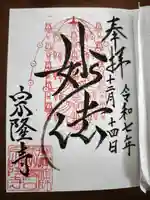 奉拝
令和七年
十二月二十四日
妙法
宗隆寺